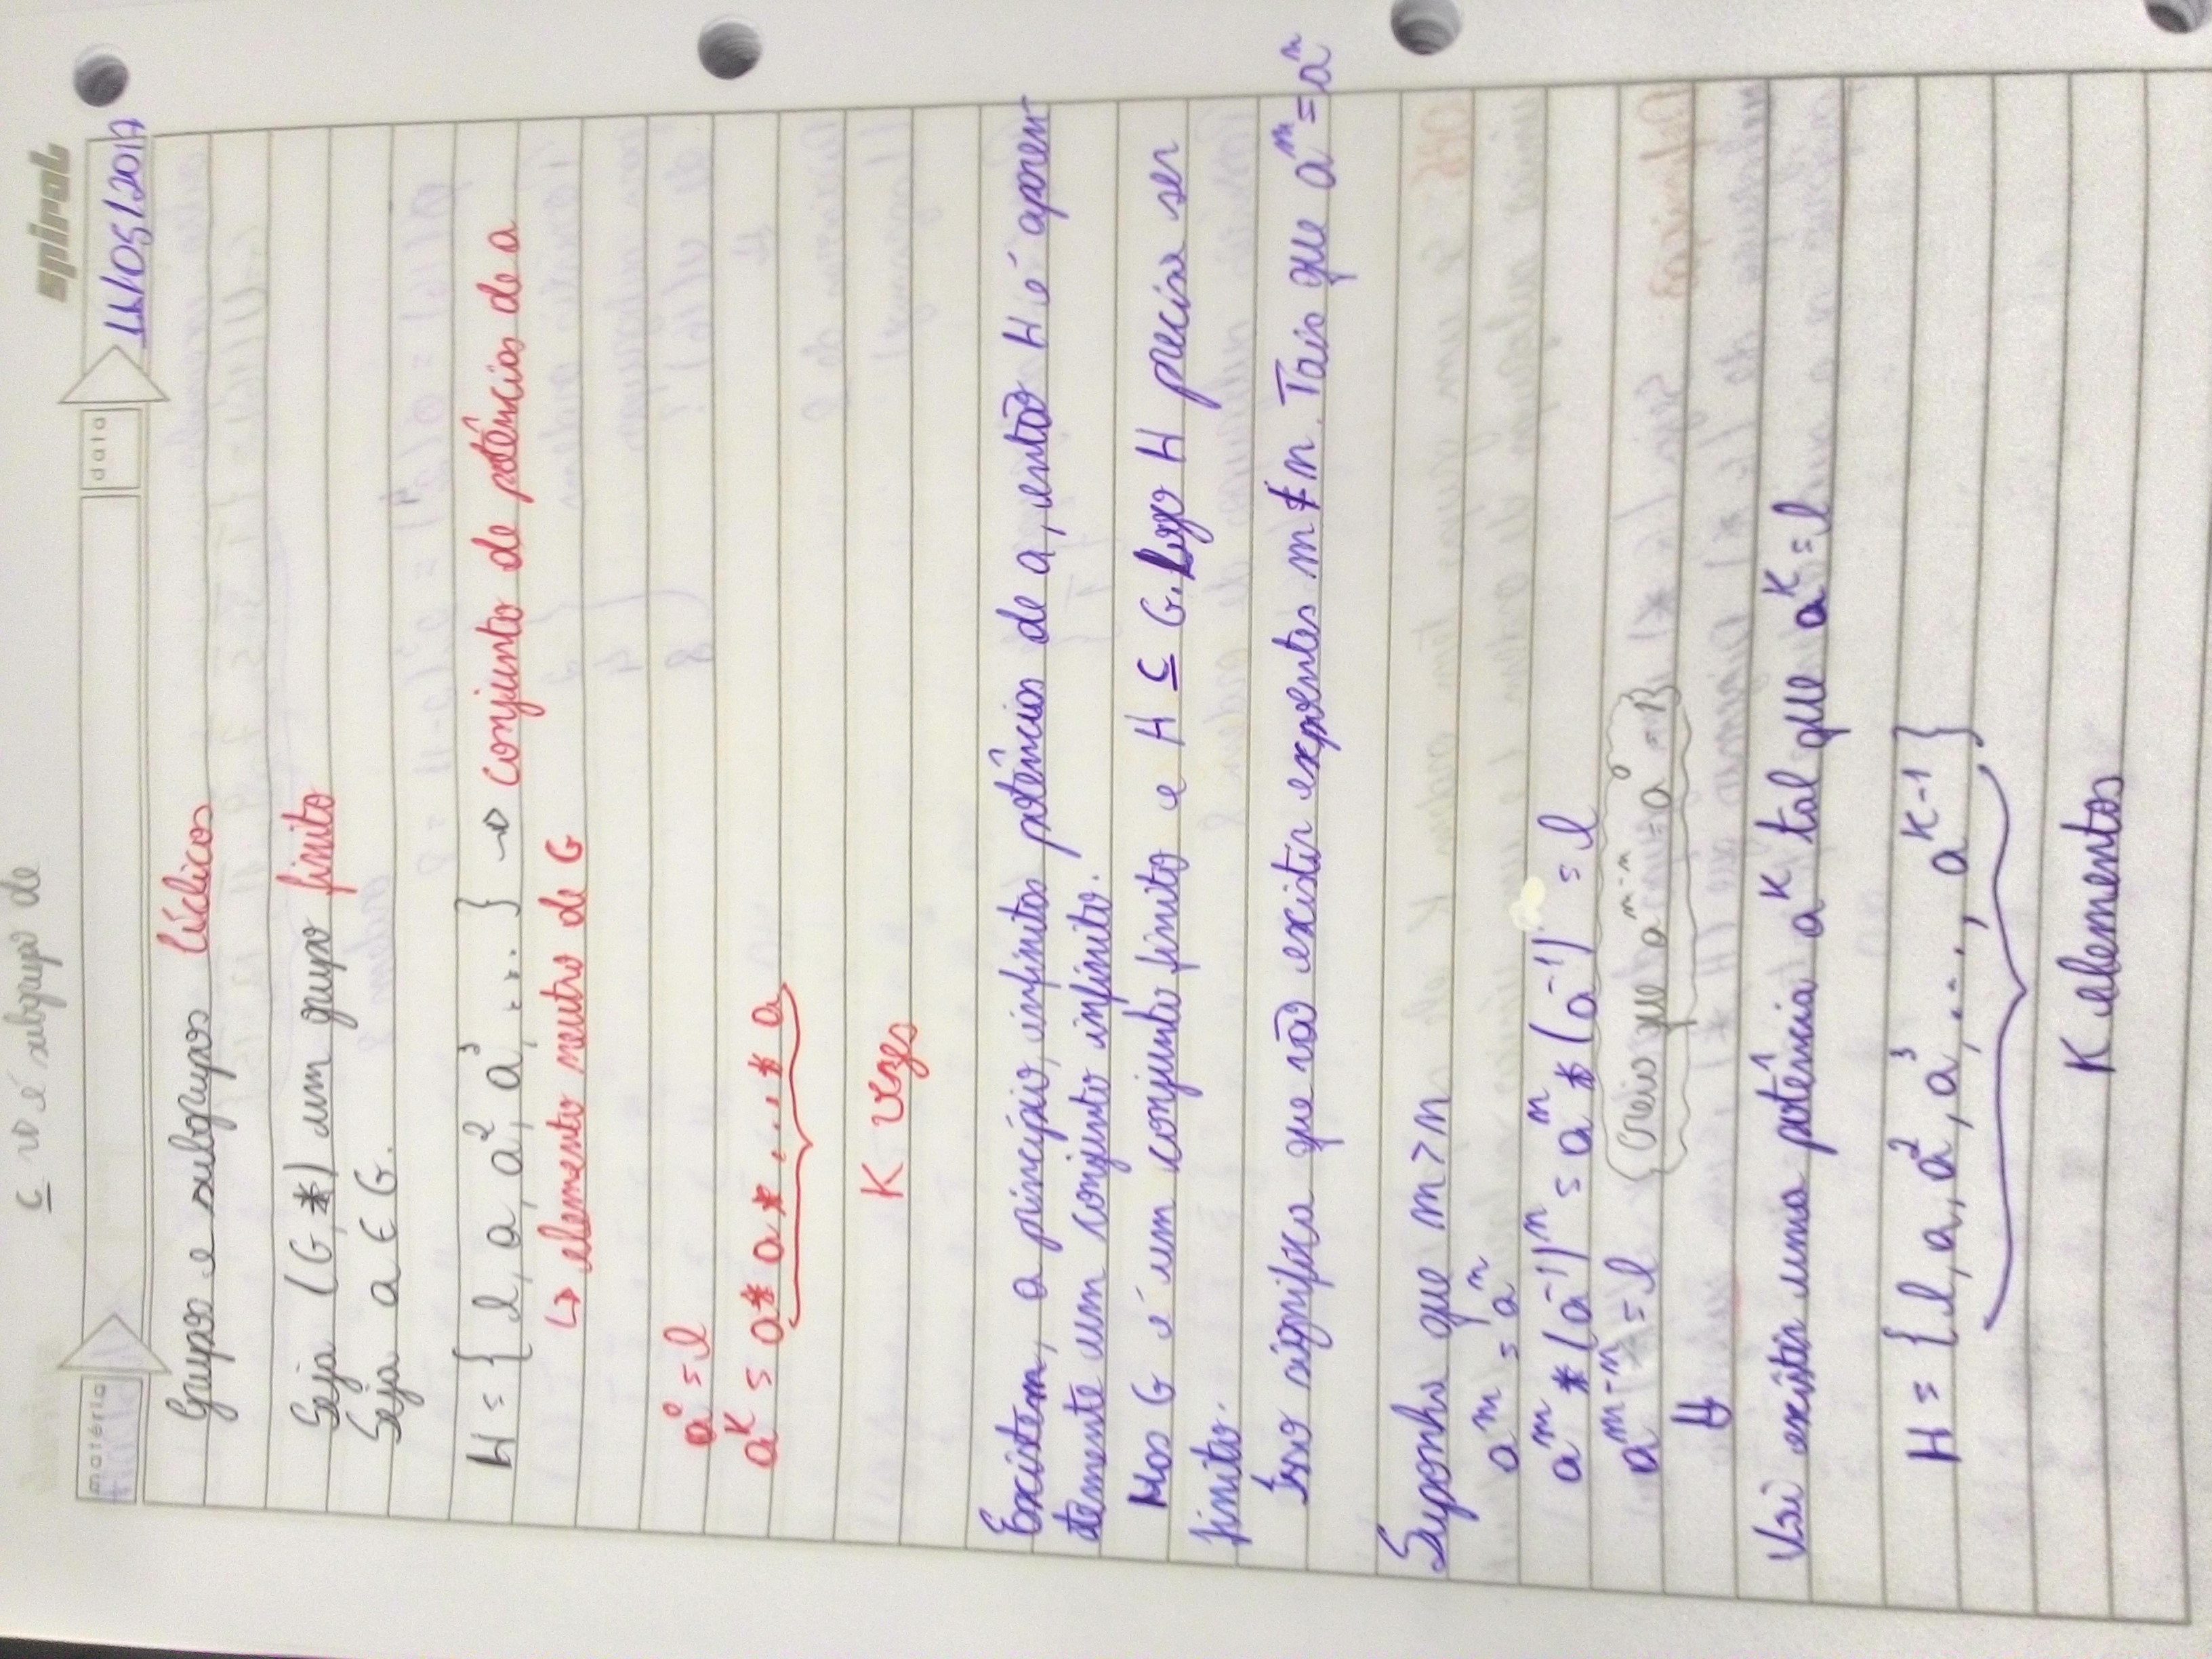 ⊆ → é subgrupo de
spiral
matéria
data
11/05/2017
Grupos e subgrupos Cíclicos
Seja (G, *) um grupo finito
Seja a ∈ G.
H = { e, a, a², a³, ... } → conjunto de potências de a
↳ elemento neutro de G
a⁰ = e
a^K = a * a * ... * a
K vezes
Existem, a princípio, infinitas potências de a, então H é aparen-
temente um conjunto infinito.
Mas G é um conjunto finito e H ⊆ G. Logo H precisa ser
finito.
Isso significa que vão existir expoentes m ≠ n. Tais que a^m = a^n
Suponha que m > n
a^m = a^n
a^m * (a^-1)^n = a^n * (a^-1) = e
a^m-n = e (Creio que a^m-n = a⁰ = 1)
⇓
Vai existir uma potência a^K tal que a^K = e
H = { e, a, a², a³, ..., a^K-1 }
K elementos